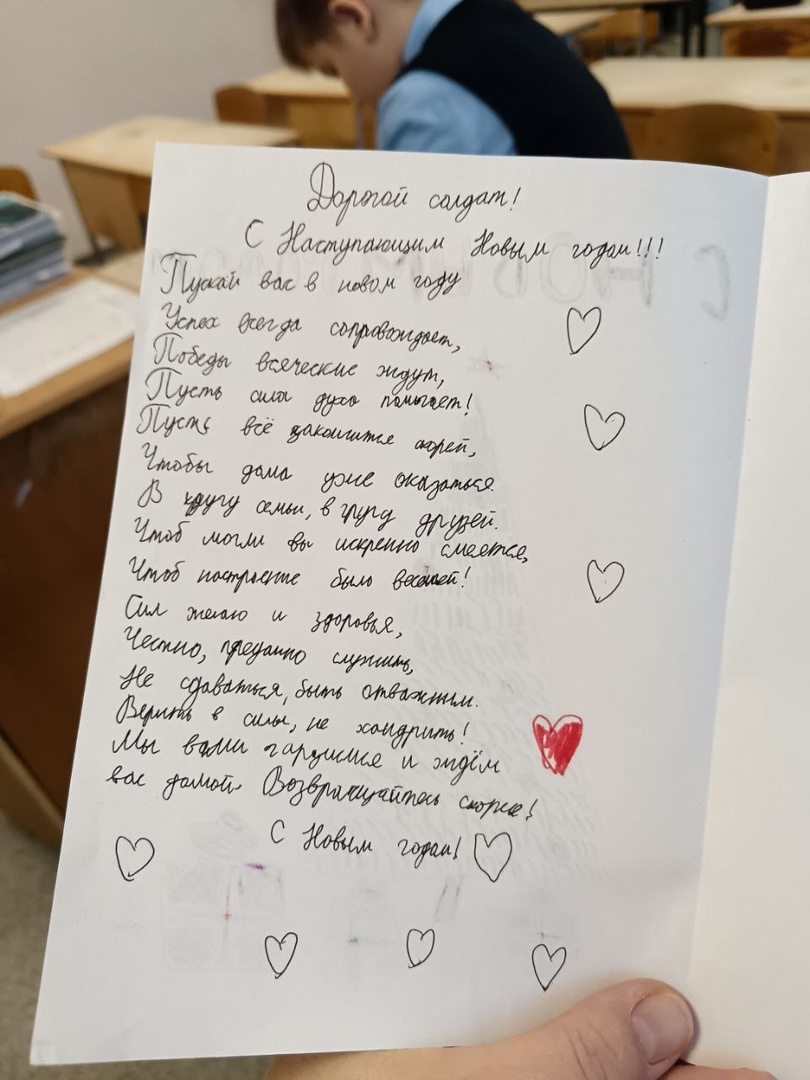 Дорогой солдат!
С Наступающим Новым годам!!!
Пускай вас в новом году
Успех всегда сопровождает,
Победы всяческие ждут,
Пусть сила духа помагает!
Пусть всё закончится скорей,
Чтобы дома уже оказаться.
В кругу семьи, в групу друзей.
Чтоб могли вы искренно смеятся,
Чтоб настроение было веселей!
Сил желаю и здоровья,
Честно, преданно служить,
Не сдаваться, быть отважным.
Верить в силы, не хандрить!
Мы вами гардимся и ждём
вас домой. Возвращайтесь скорее!
С Новым годам!